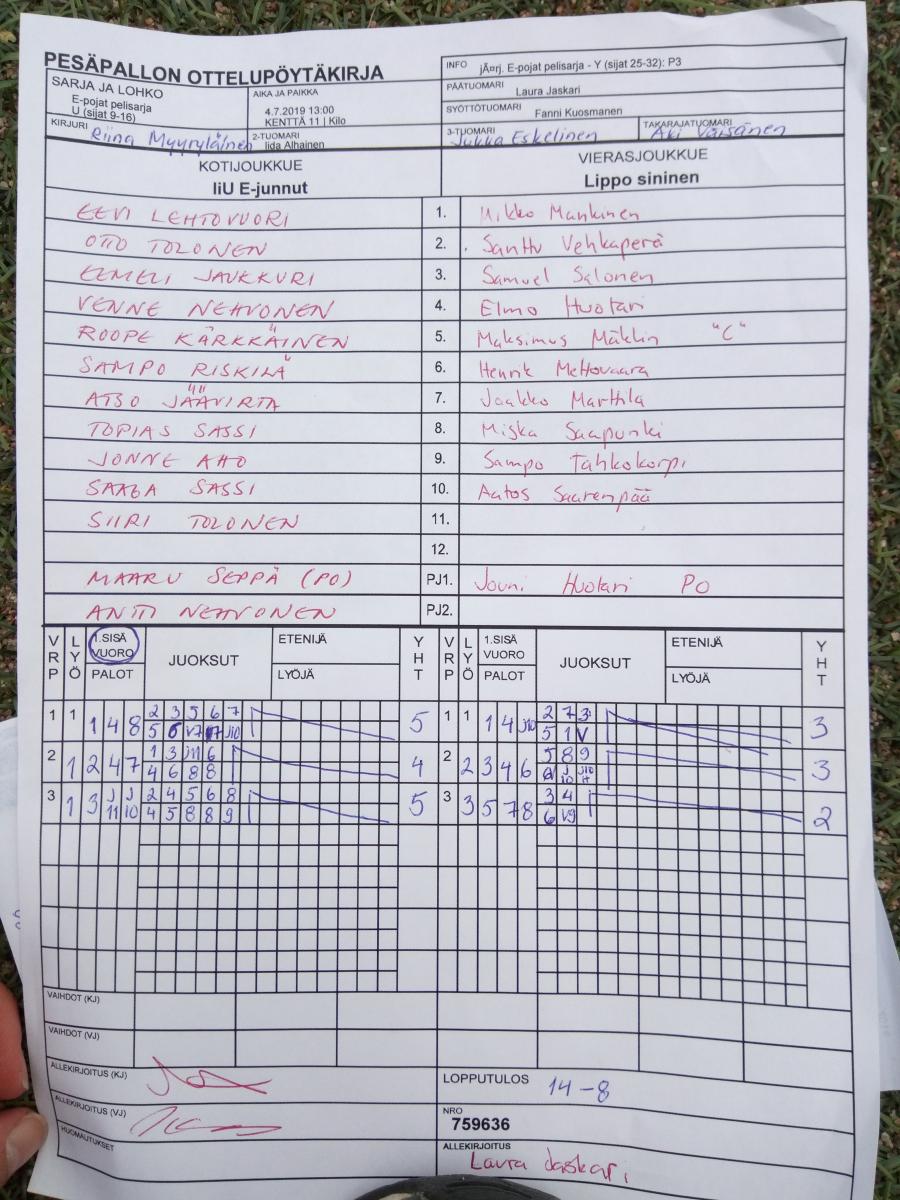 PESÄPALLON OTTELUPÖYTÄKIRJA
SARJA JA LOHKO
E-pojat pelisarja
U (sijat 9-16)
AIKA JA PAIKKA
4.7.2019 13:00
KENTTÄ 11 | Kilo
KIRJURI Riina Myyryläinen
2-TUOMARI
Iida Alhainen
INFO jÃ¤rj. E-pojat pelisarja - Y (sijat 25-32): P3
PÄÄTUOMARI Laura Jaskari
SYÖTTÖTUOMARI Fanni Kuosmanen
3-TUOMARI Jukka Eskelinen
TAKARAJATUOMARI Aki Väisänen
KOTIJOUKKUE
IiU E-junnut
VIERASJOUKKUE
Lippo sininen
EEVI LEHTOVUORI 1. Mikko Mankinen
OTTO TOLONEN 2. Santtu Vehkaperä
EEMELI JAUKKURI 3. Samuel Salonen
VENNE NEHVONEN 4. Elmo Huotari
ROOPE KÄRKKÄINEN 5. Maksimus Mäklin "C"
SAMPO RISKILÄ 6. Henrik Mettovaara
ATSO JÄÄVIRTA 7. Jaakko Marttila
TOPIAS SASSI 8. Miska Saapunki
JONNE AHO 9. Sampo Tahkokorpi
SAAGA SASSI 10. Aatos Saarenpää
SIIRI TOLONEN 11.
12.
MAARU SEPPÄ (PO) PJ1. Jouni Huotari PO
ANTTI NEHVONEN PJ2.
VRP LYÖ 1.SISÄ VUORO PALOT JUOKSUT ETENIJÄ LYÖJÄ YHT VRP LYÖ 1.SISÄ VUORO PALOT JUOKSUT ETENIJÄ LYÖJÄ YHT
1 1 1 4 8 2 3 5 6 7 5 1 1 1 4 J10 2 7 3 3
5 6 V7 J10 5 1 V
2 1 2 4 7 1 3 J11 6 4 2 2 3 4 6 5 8 9 3
4 6 8 8
3 1 3 J11 J10 2 4 5 6 8 5 3 3 5 7 8 3 4 2
4 5 8 8 9 6 V9
VAIHDOT (KJ)
VAIHDOT (VJ)
ALLEKIRJOITUS (KJ)
LOPPUTULOS 14-8
ALLEKIRJOITUS (VJ)
NRO
759636
HUOMAUTUKSET
ALLEKIRJOITUS
Laura Jaskari